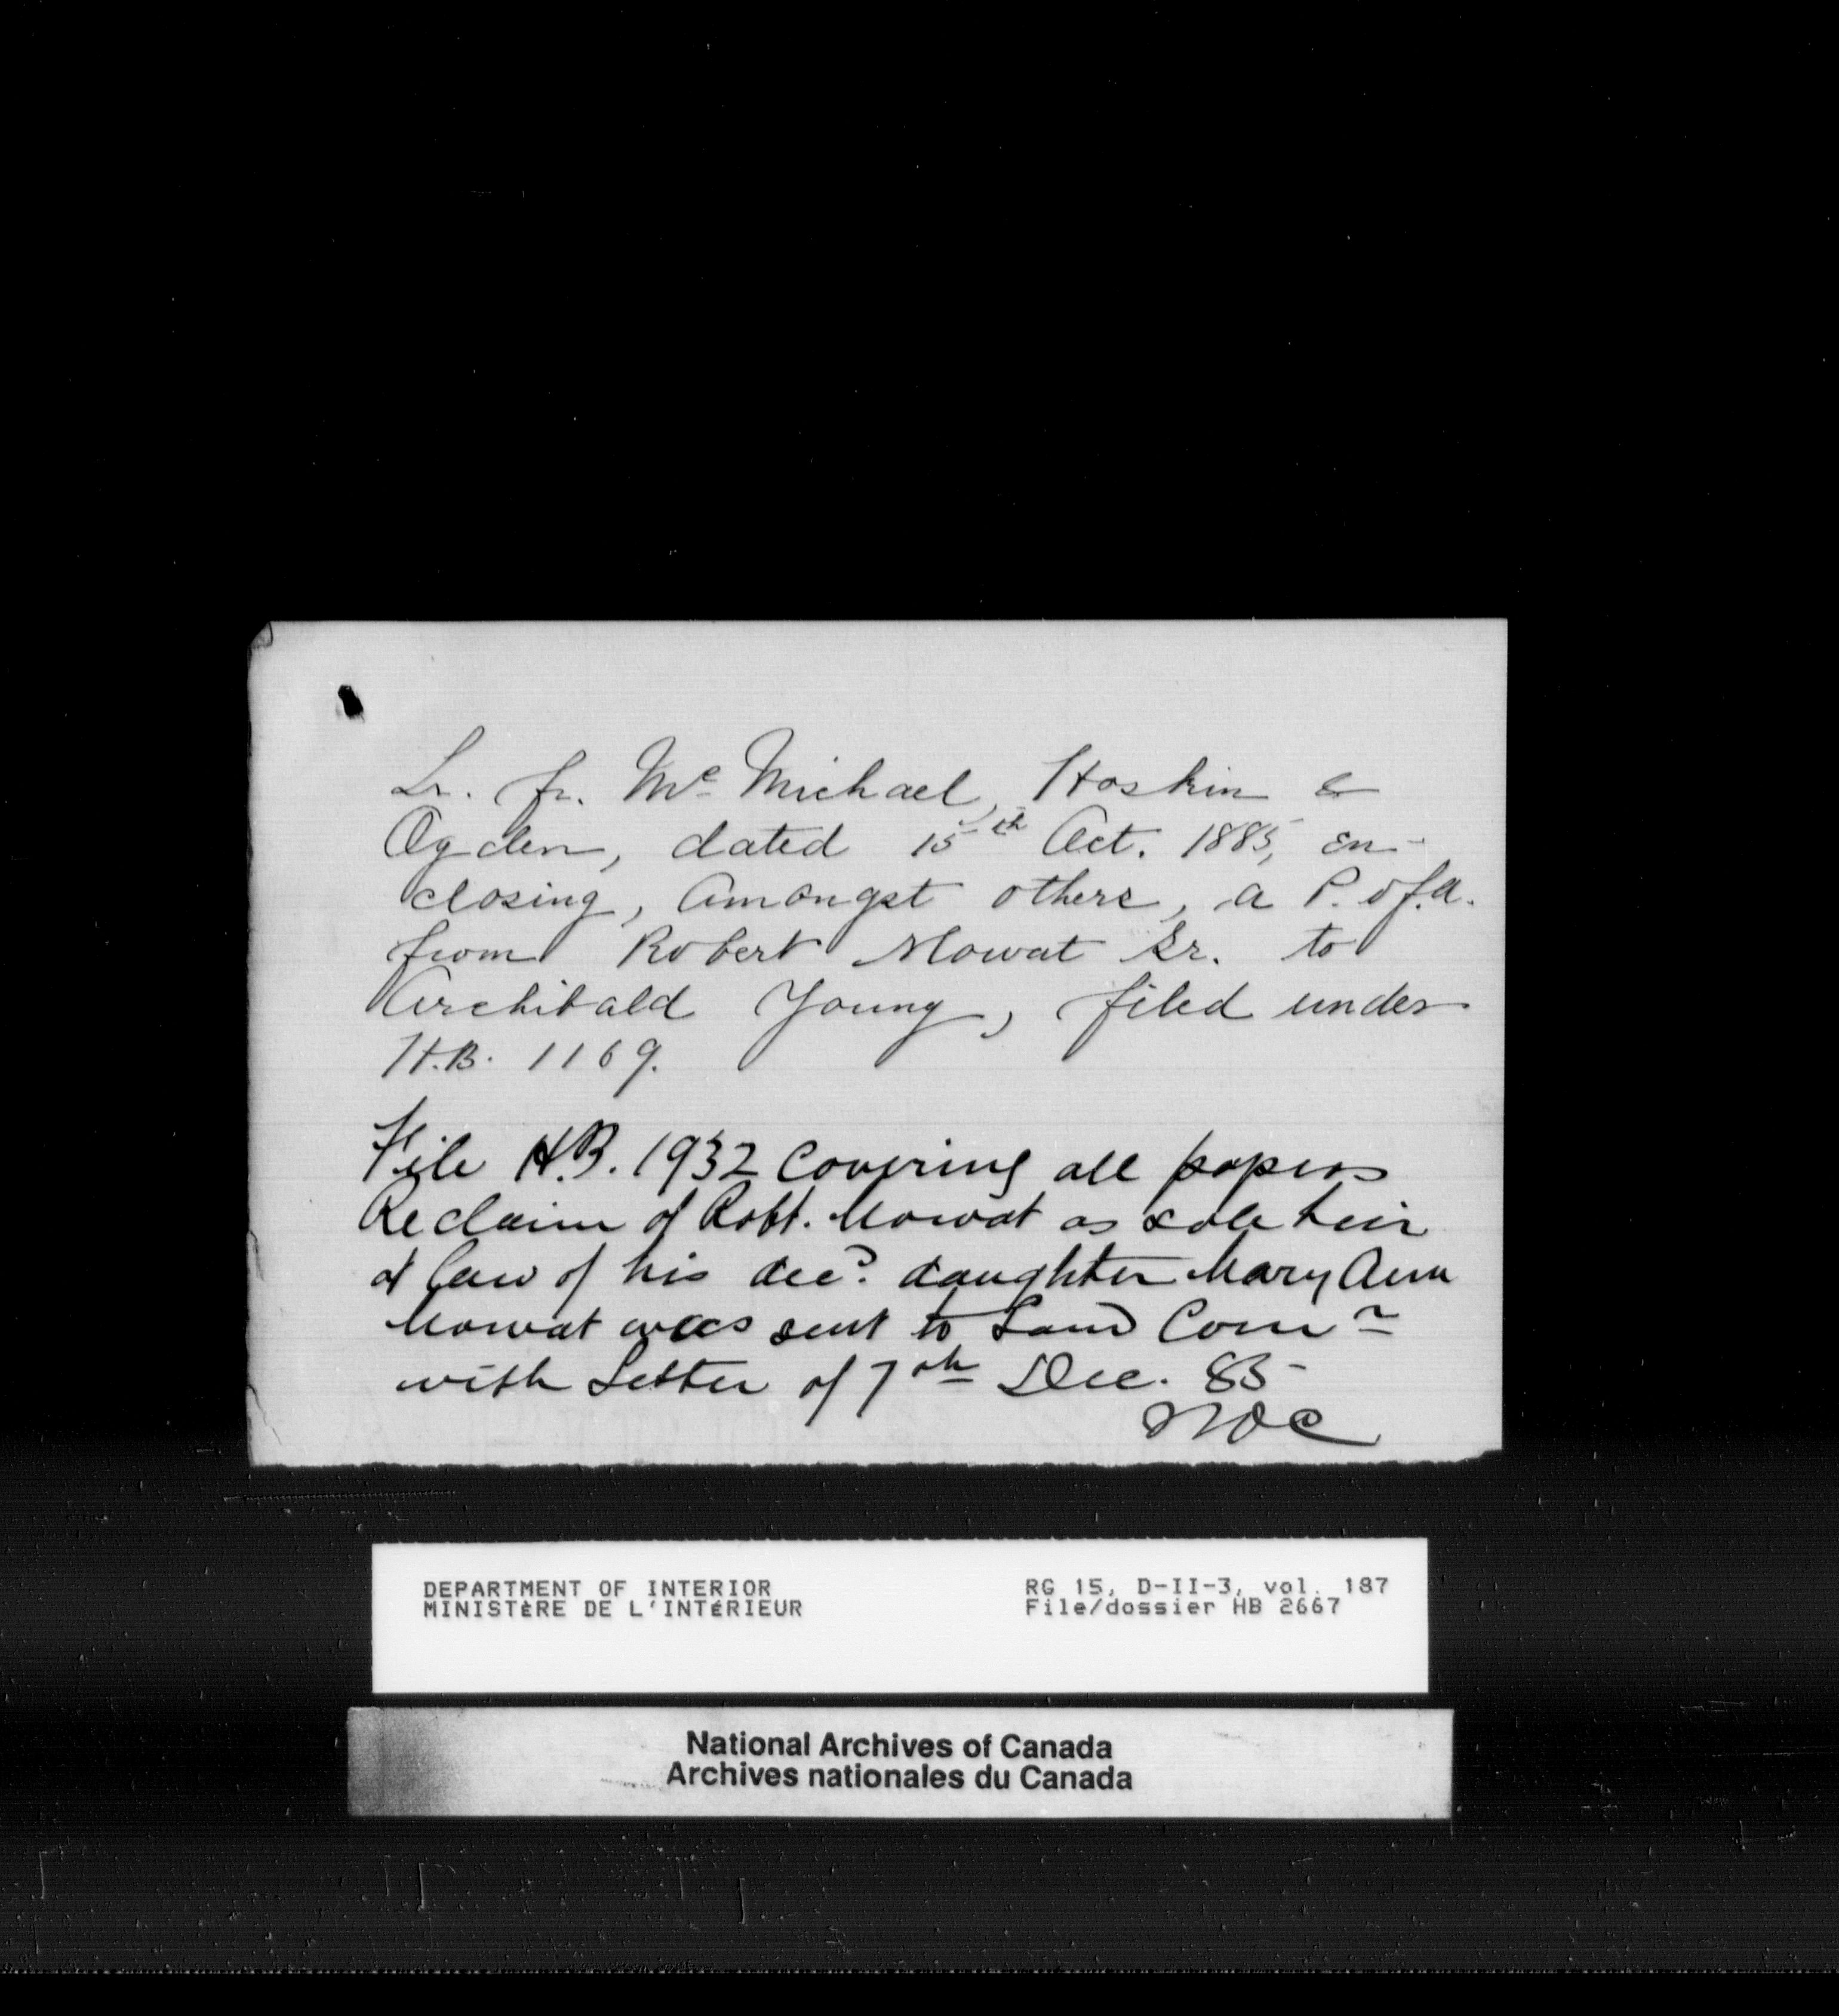 Lr. fr. Mc Michael, Hoskin &
Ogden, dated 15th Oct. 1885, en-
closing, amongst others, a P. of A.
from Robert Mowat Sr. to
Archibald Young, filed under
H.B. 1169.
File H.B. 1932 covering all papers
Re claim of Robt. Mowat as sole heir
at law of his decd. daughter Mary Ann
Mowat was sent to Land Comr
with Letter of 7th Dec. 85
DEPARTMENT OF INTERIOR
MINISTÈRE DE L'INTÉRIEUR
RG 15, D-II-3, vol. 187
File/dossier HB 2667
National Archives of Canada
Archives nationales du Canada